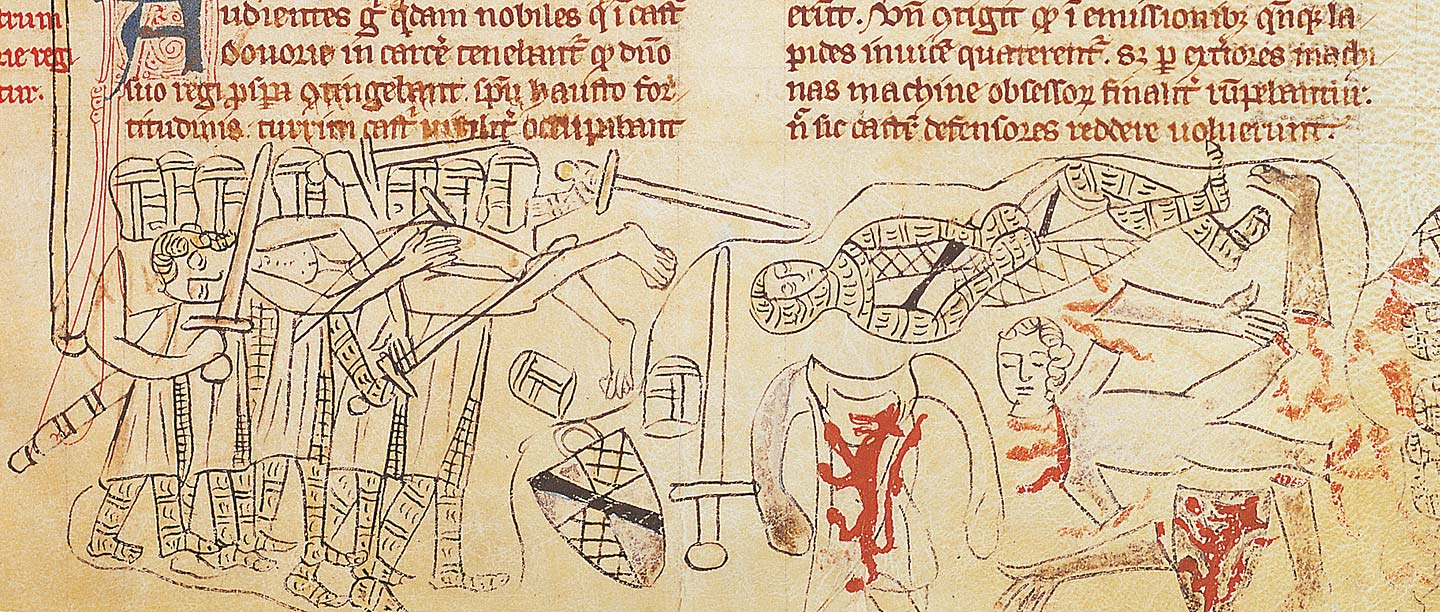 trum
rie regi
tur.
Audientes gͥ qͥdam nobiles qͥ ī castͬ
Dovorie in carcͤe tenebantͬ qͥ dn̄o
suo regi p̱spa ꝯtingebant. sp̄u hausto for
titudinis turrim castͬ occupabant
erūt. Vn̄ ꝯtigit qͥ ī emissionibꝫ qn̄qꝫ la
pides īuicē quaterentͬ. sꝫ ꝑ extͥores machi
nas machine obsessoꝝ finalitͬ
n̄ sic castͤ defensores reddere uoluerunt.